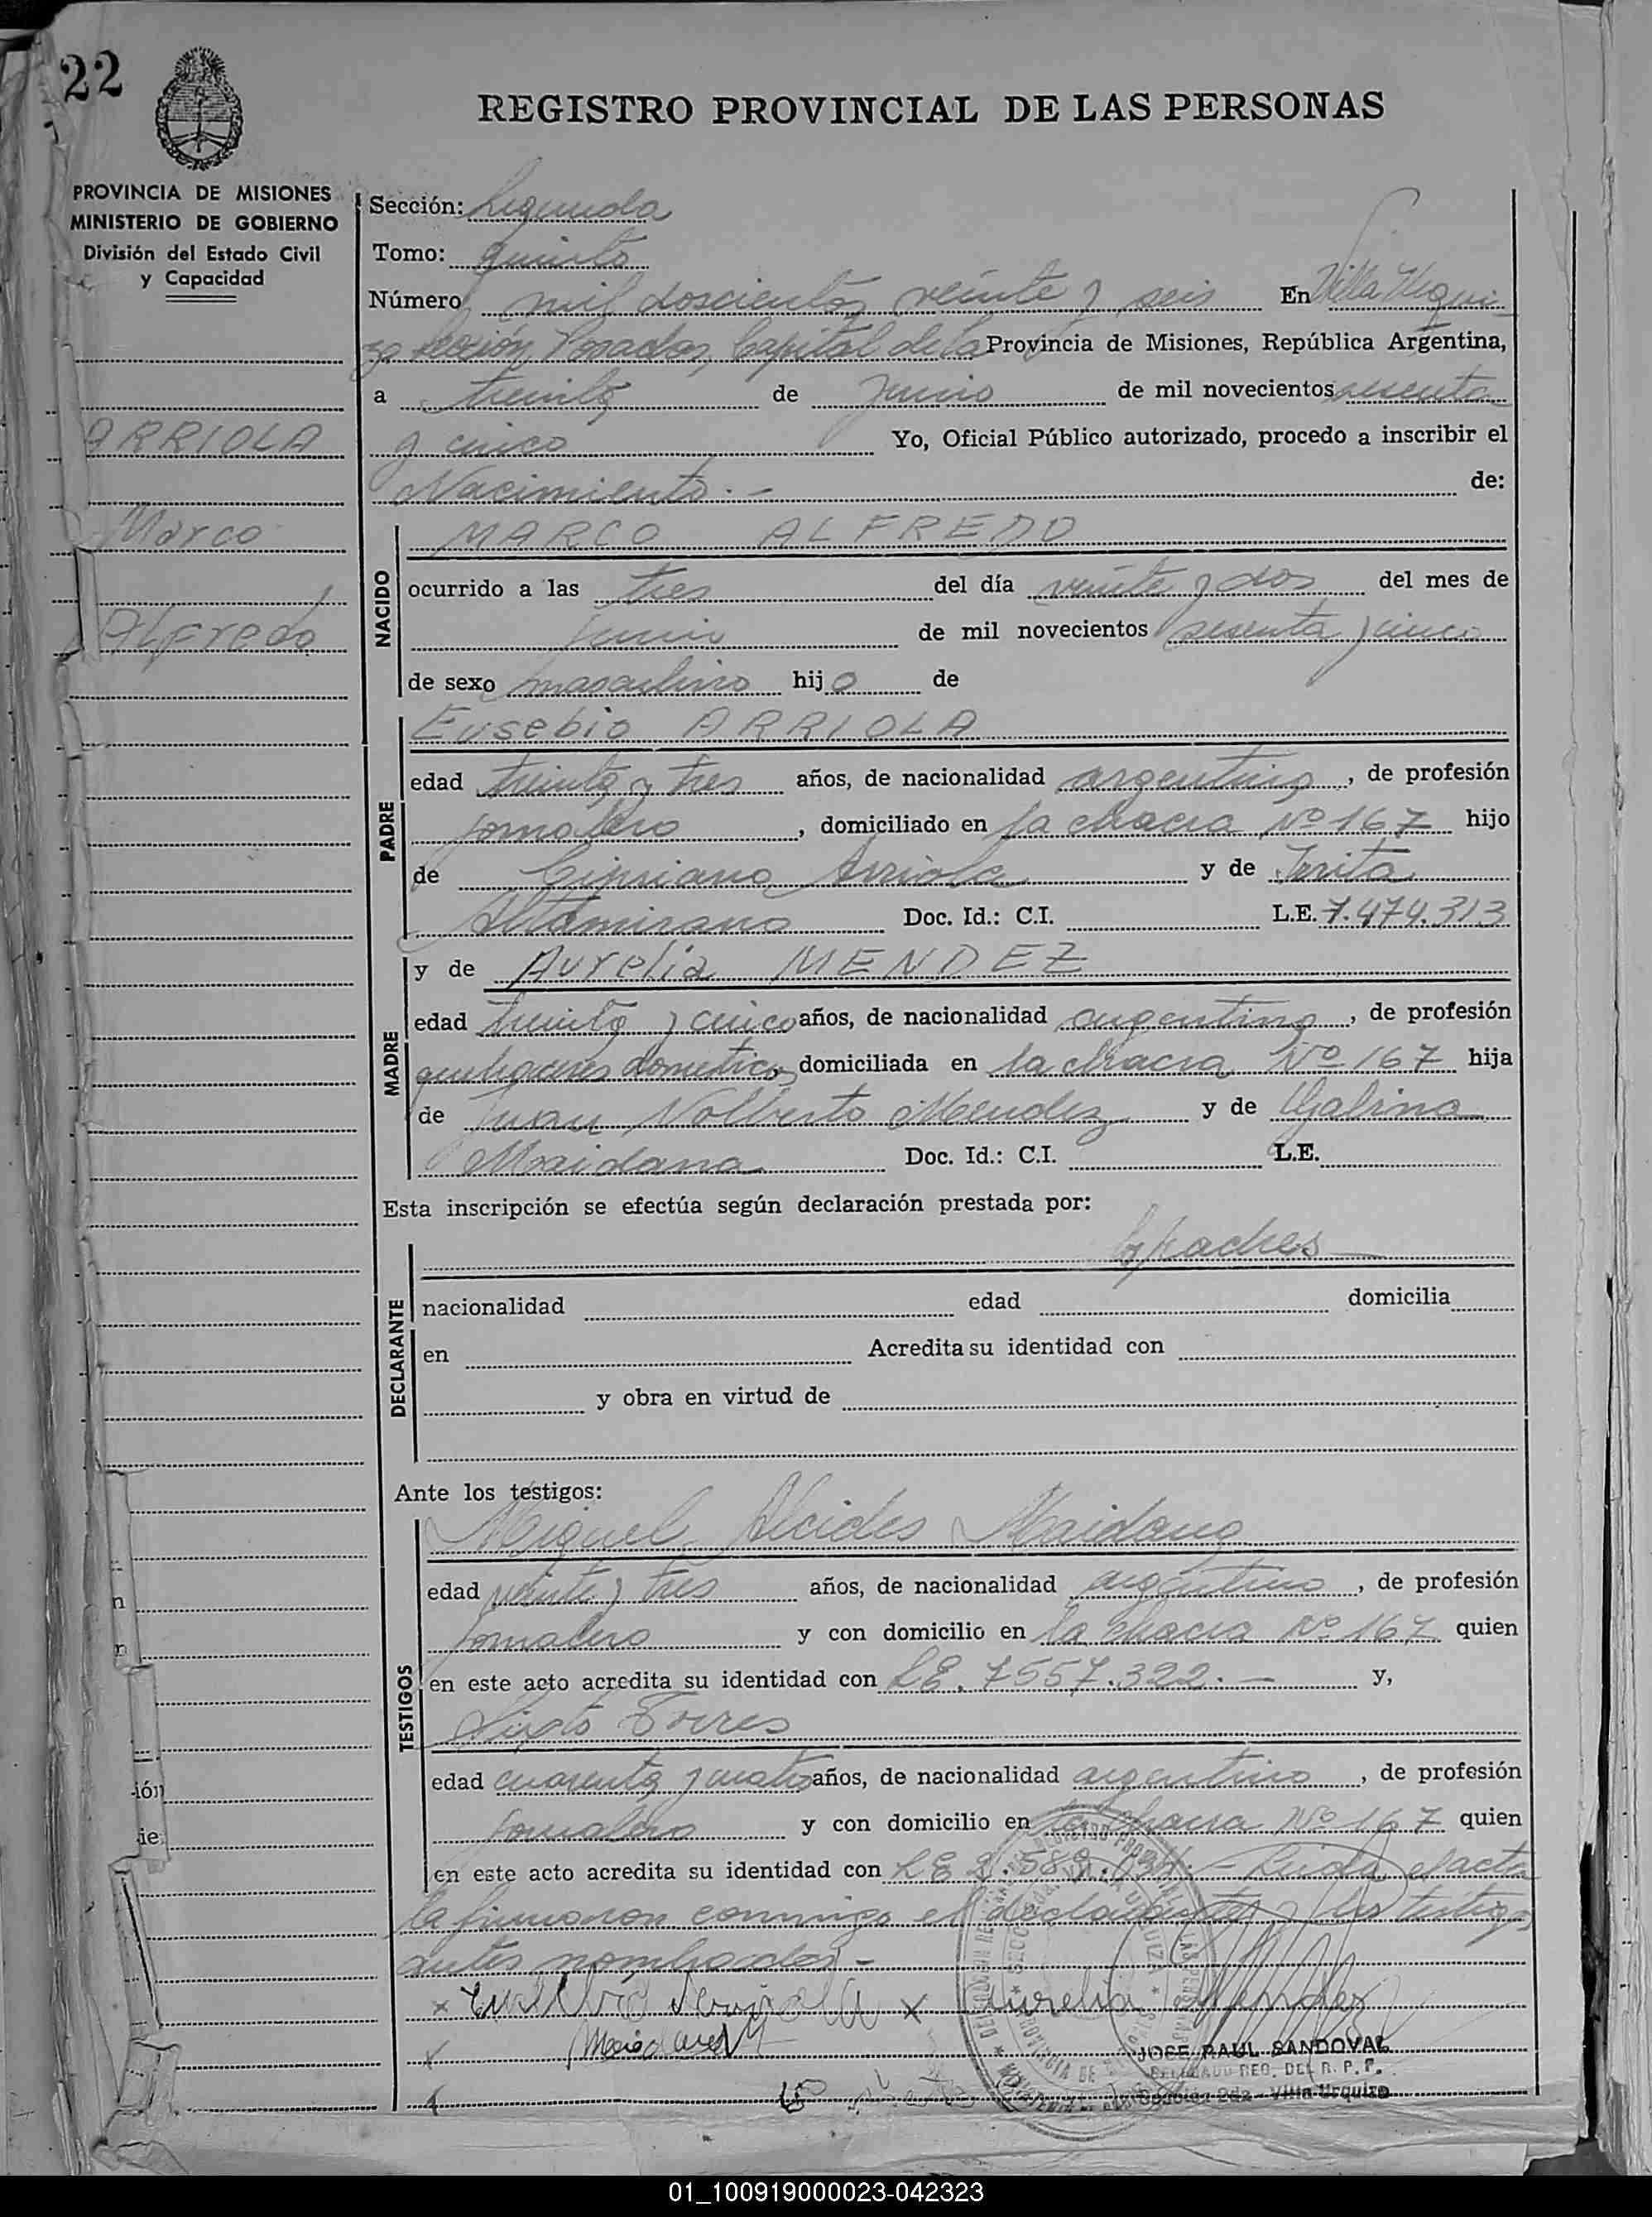 22
REGISTRO PROVINCIAL DE LAS PERSONAS
PROVINCIA DE MISIONES
MINISTERIO DE GOBIERNO
División del Estado Civil
y Capacidad
Sección: Segunda
Tomo: quinto
Número mil doscientos veinte y seis En Villa Urqui
za sección Posadas, Capital de la Provincia de Misiones, República Argentina,
a treinta de Junio de mil novecientos sesenta
y cinco Yo, Oficial Público autorizado, procedo a inscribir el
Nacimiento.- de:
ARRIOLA
Marco
Alfredo
NACIDO
MARCO ALFREDO
ocurrido a las tres del día veinte y dos del mes de
Junio de mil novecientos sesenta y cinco
de sexo masculino hijo de
PADRE
Eusebio ARRIOLA
edad treinta y tres años, de nacionalidad argentino, de profesión
jornalero, domiciliado en la chacra Nº 167 hijo
de Cipriano Arriola y de
Altamirano Doc. Id.: C.I. L.E. 7.474.313
MADRE
y de Aurelia MENDEZ
edad treinta y cinco años, de nacionalidad argentina, de profesión
quehaceres domesticos, domiciliada en la chacra Nº 167 hija
de Juan Nolberto Mendez y de Galrina
Maidana Doc. Id.: C.I. L.E.
Esta inscripción se efectúa según declaración prestada por:
DECLARANTE
los padres
nacionalidad edad domicilia
en Acredita su identidad con
y obra en virtud de
Ante los testigos:
TESTIGOS
Miguel Alcides Maidana
edad veinte y tres años, de nacionalidad argentino, de profesión
jornalero y con domicilio en la chacra Nº 167 quien
en este acto acredita su identidad con LE. 7557.322.- y,
Sixto Torres
edad cuarenta y cuatro años, de nacionalidad argentino, de profesión
jornalero y con domicilio en la chacra Nº 167 quien
en este acto acredita su identidad con LE Leida el acta
la firmaron conmigo el declarante y los testigos
antes nombrados.-
x x Aurelia Mendez
JOSE RAUL SANDOVAL
DELEGADO REG. DEL R. P. P.
Sección 2da - Villa Urquiza
01_100919000023-042323